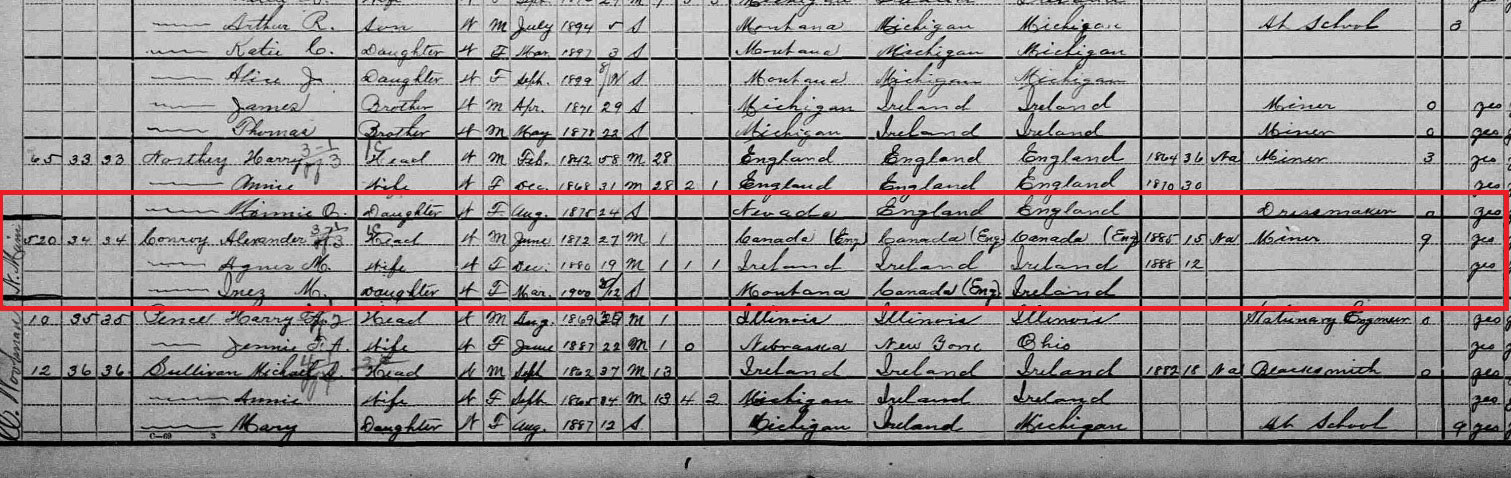 Arthur R. Son W M July 1894 5 S Montana Michigan Michigan At School 8
—— Katie C. Daughter W F Mar. 1897 3 S Montana Michigan Michigan
—— Alice J. Daughter W F Sept. 1899 8/12 S Montana Michigan Michigan
—— James Brother W M Apr. 1871 29 S Michigan Ireland Ireland Miner 0 yes
—— Thomas Brother W M May 1878 22 S Michigan Ireland Ireland Miner 0 yes
65 33 33 Northey Harry Head W M Feb. 1842 58 M 28 England England England 1864 36 Na Miner 3 yes
—— Annie Wife W F Dec. 1868 31 M 28 2 1 England England England 1870 30 yes
—— Minnie O. Daughter W F Aug. 1875 24 S Nevada England England Dressmaker 0 yes
N. Main
520 34 34 Conroy Alexander Head W M June 1872 27 M 1 Canada (Eng) Canada (Eng) Canada (Eng) 1885 15 Na Miner 9 yes
—— Agnes M. Wife W F Dec. 1880 19 M 1 1 1 Ireland Ireland Ireland 1888 12 yes
—— Inez M. Daughter W F Mar. 1900 2/12 S Montana Canada (Eng) Ireland
10 35 35 Pence Harry Head W M Aug. 1869 M 1 Illinois Illinois Illinois Stationary Engineer 0 yes
—— Jennie F. A. Wife W F June 1887 22 M 1 0 Nebraska New York Ohio yes
12 36 36 Sullivan Michael S. Head W M Sept 1862 37 M 13 Ireland Ireland Ireland 1882 18 Na Blacksmith 0 yes
—— Annie Wife W F Sept 1865 34 M 13 4 2 Michigan Ireland Ireland yes
—— Mary Daughter W F Aug. 1887 12 S Michigan Ireland Michigan At School 9 yes
C-69 3